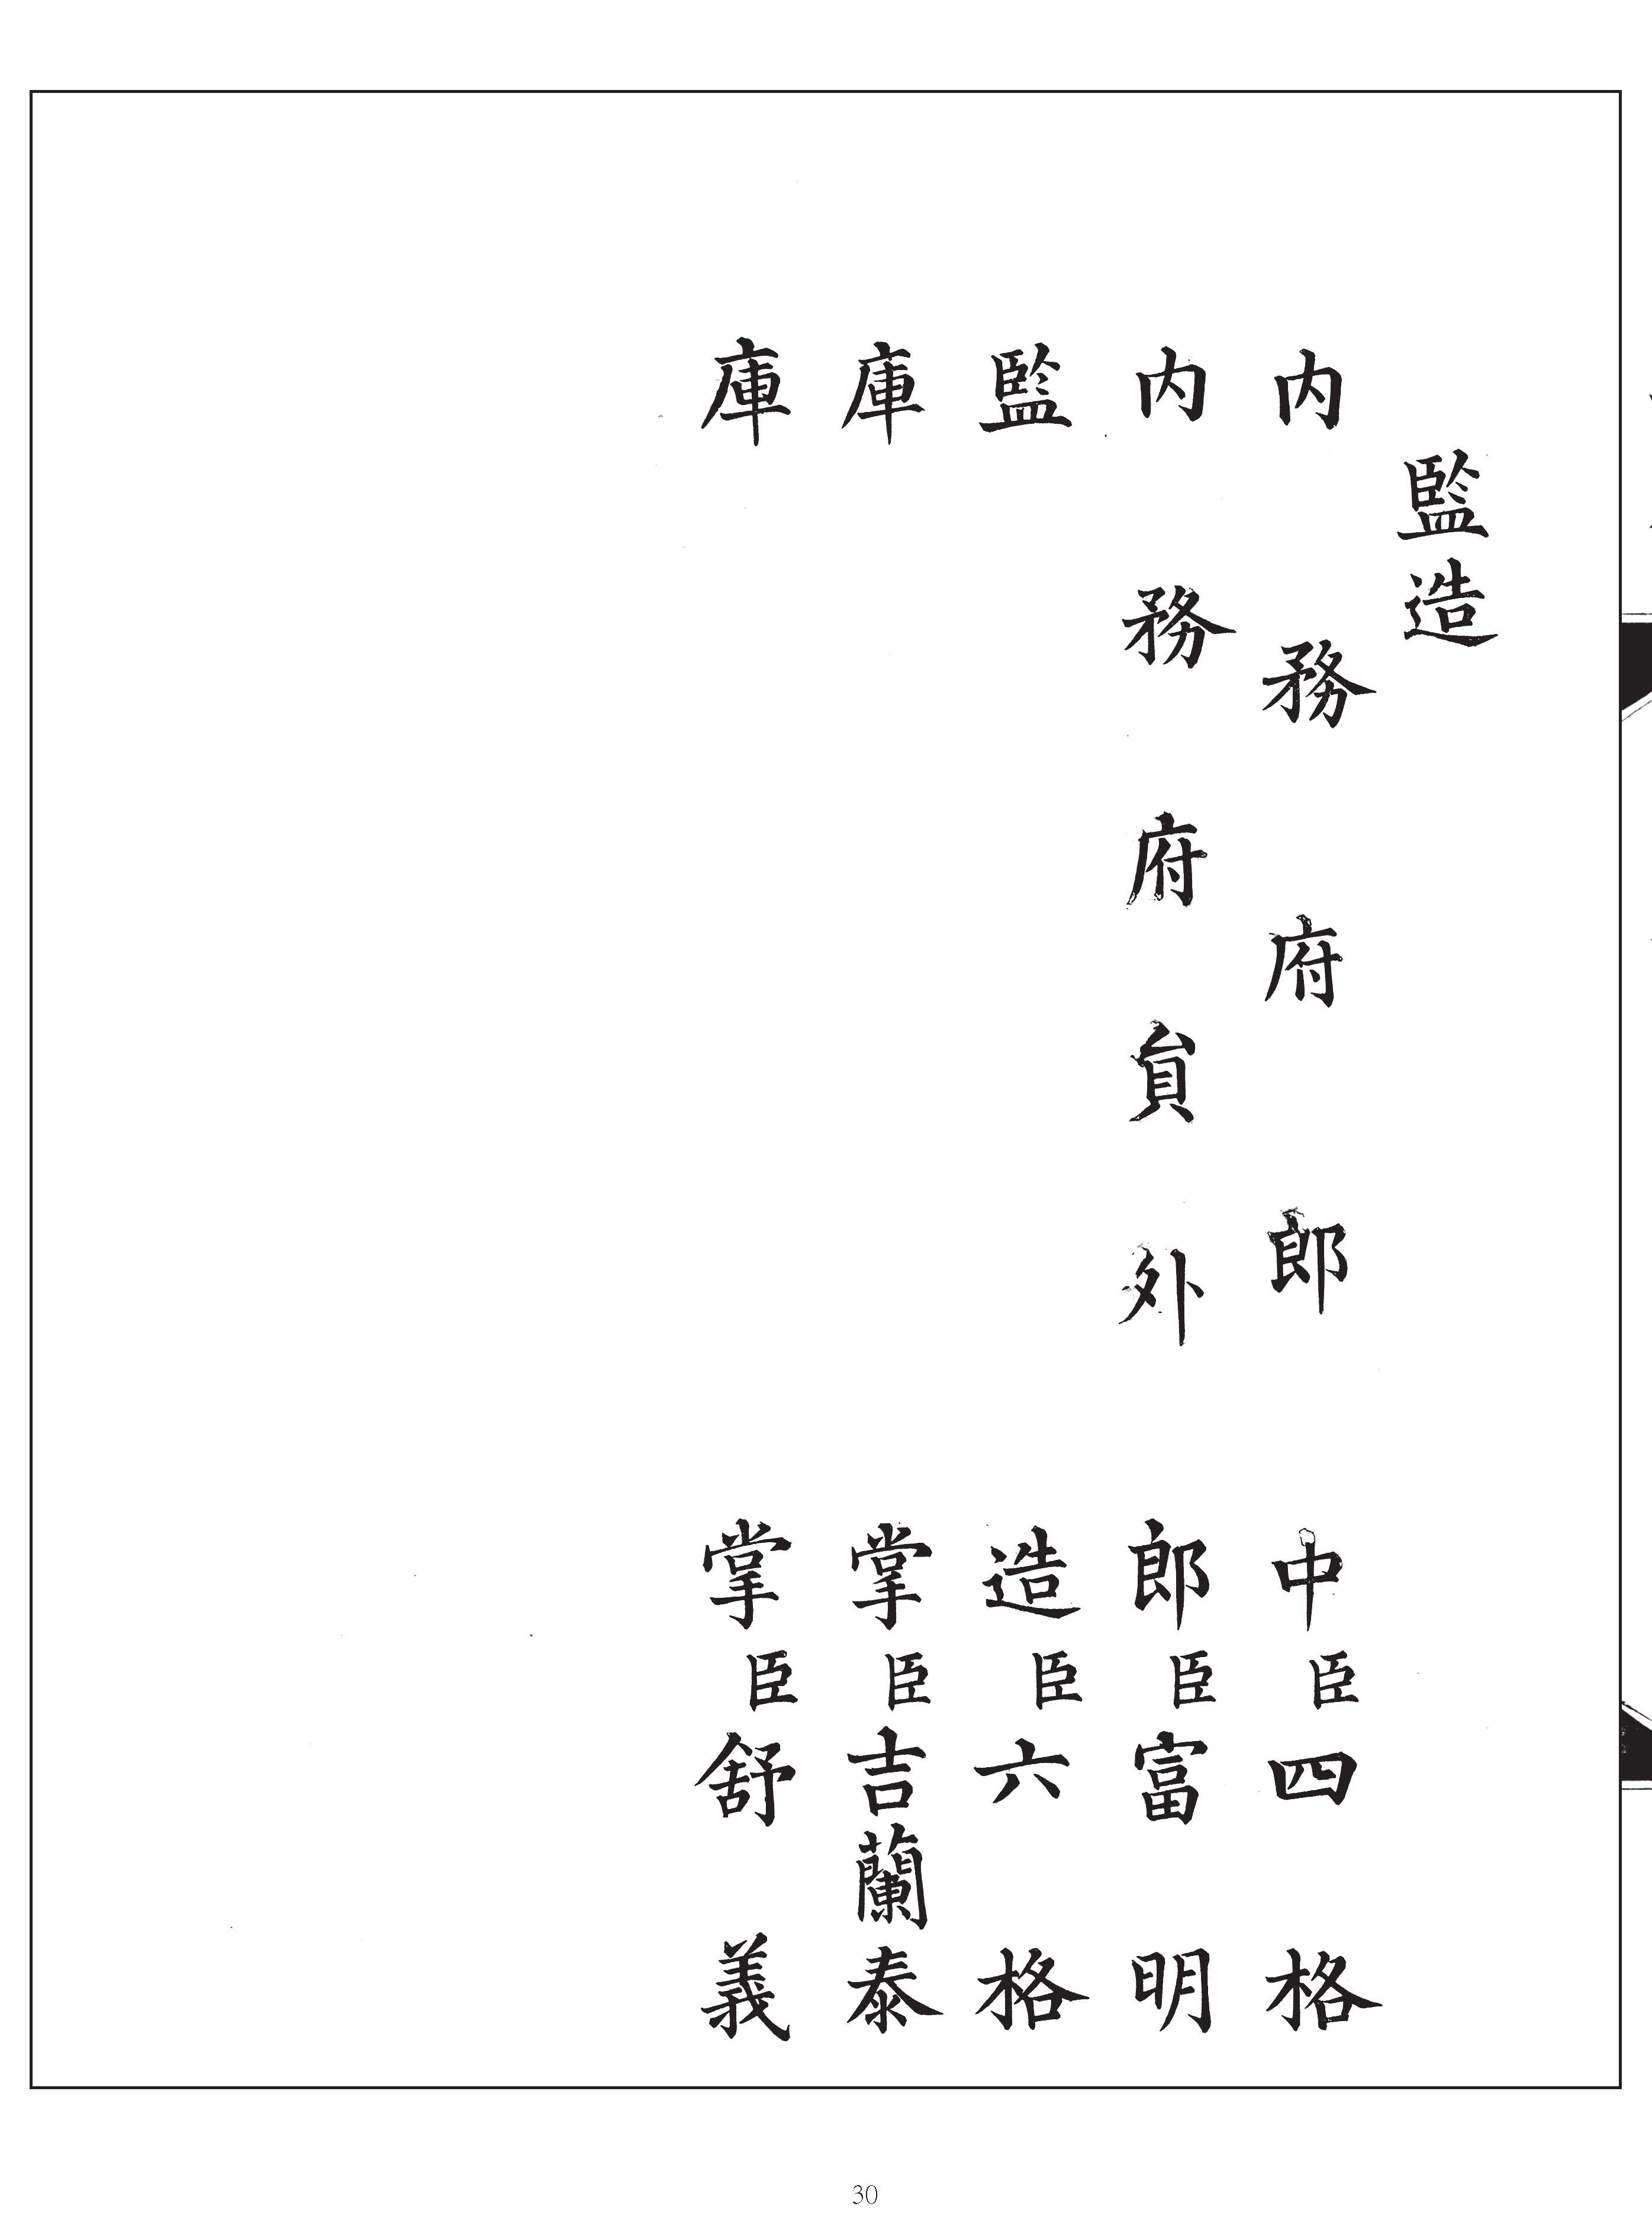 監造
内務府郎中臣四格
内務府貟外郎臣富明
監造臣六格
庫掌臣吉蘭泰
庫掌臣舒義
30